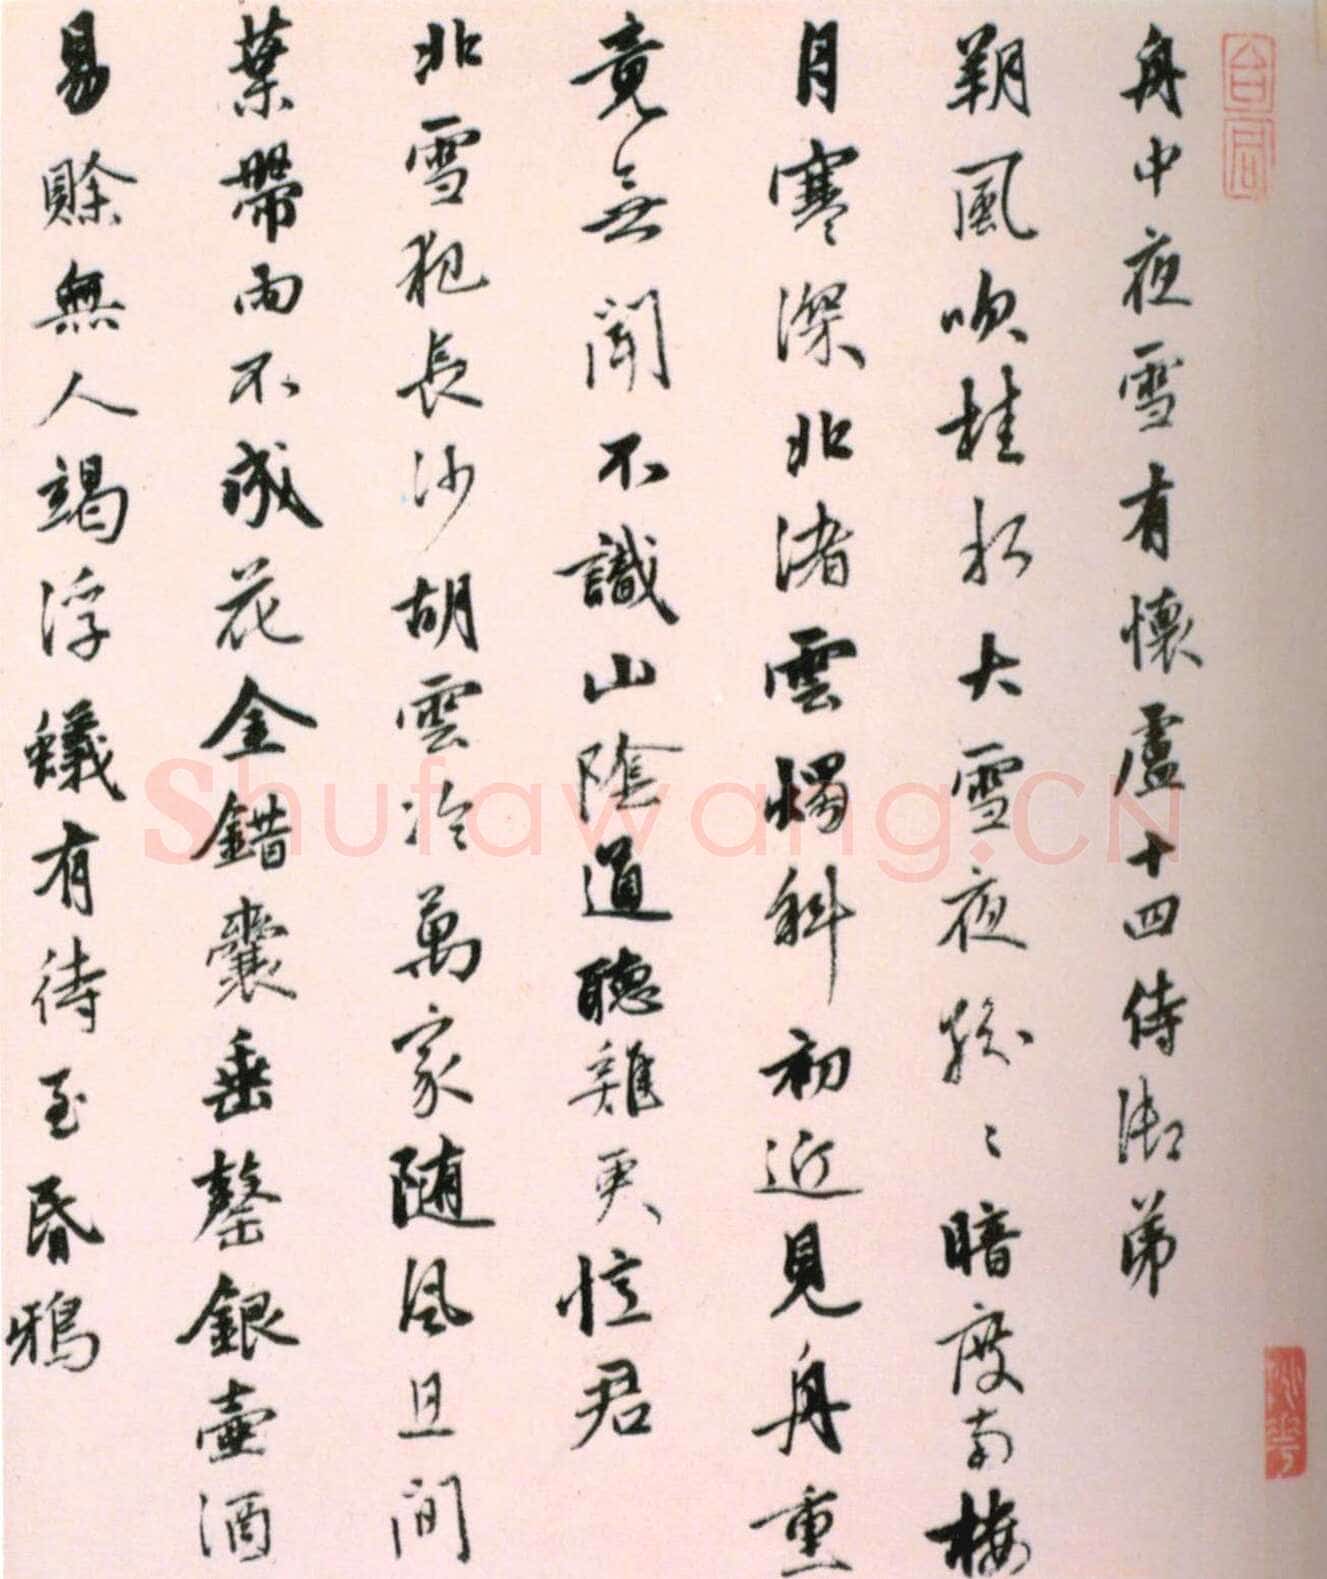 舟中夜雪有懷盧十四侍御弟
朔風吹桂水大雪夜紛〻暗度南樓
月寒深北渚雲燭斜初近見舟重
竟無聞不識山陰道聽雞更憶君
北雪犯長沙胡雲冷萬家随風且間
葉帶雨不成花金錯囊垂罄銀壺酒
易賒無人竭浮蟻有待至昏鴉
Shufawang.CN